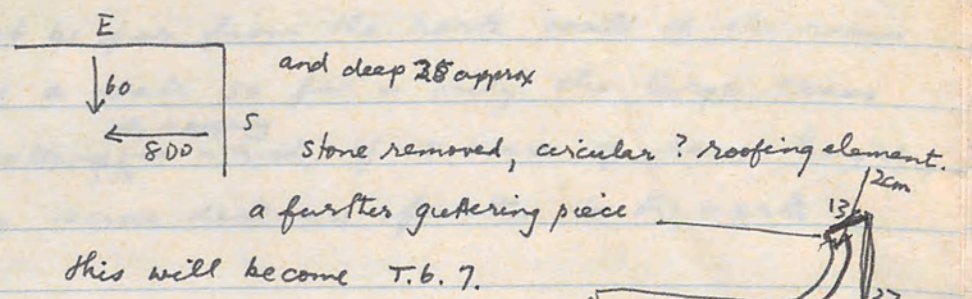 E
60
S
800
and deep approx
stone removed, circular ? roofing element.
2cm
13
a further guttering piece
this will become T.6.7.
27